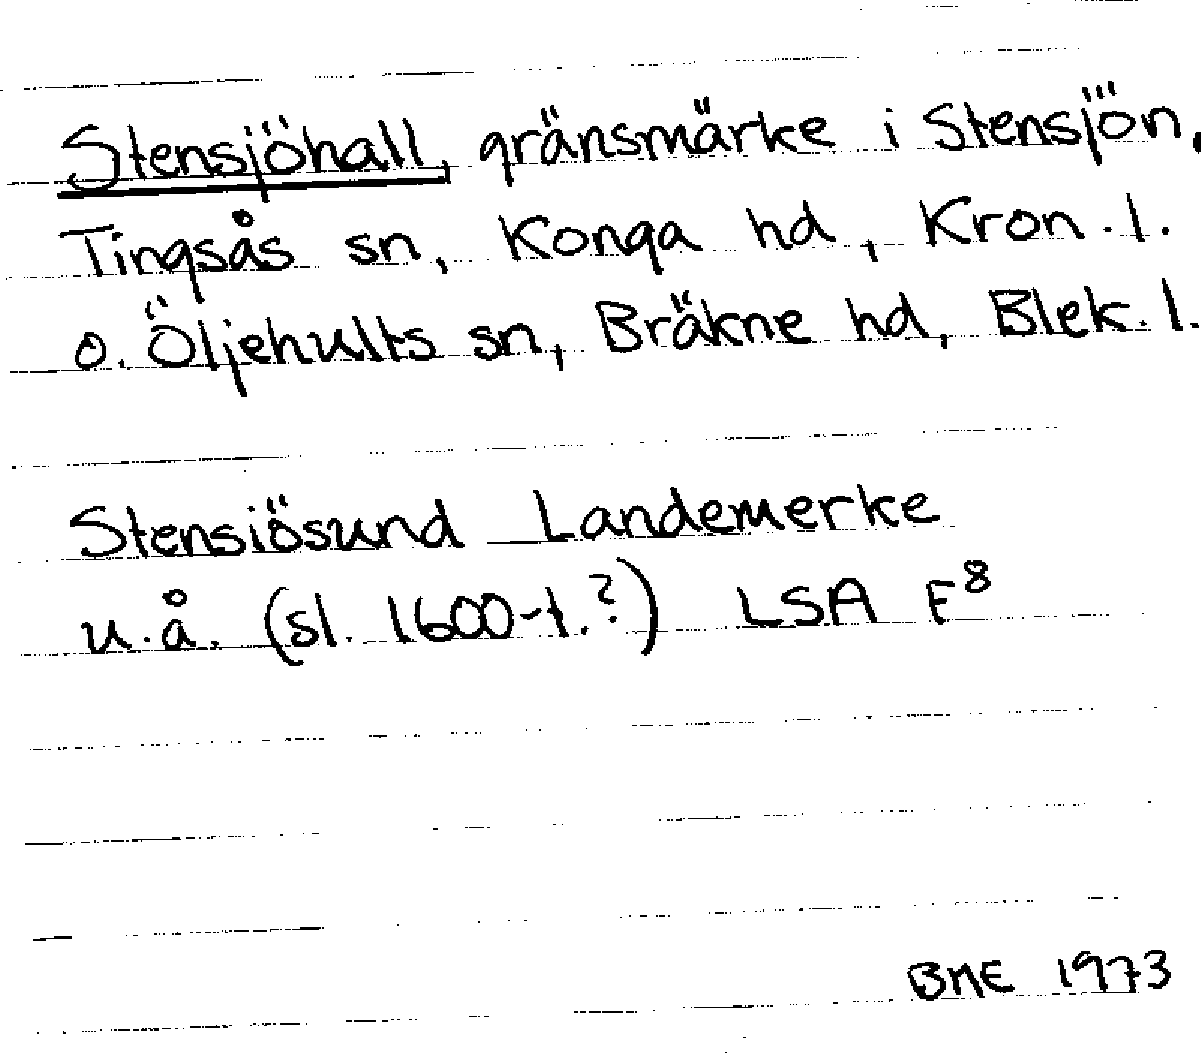 Stensjöhall, gränsmärke i Stensjön,
Tingsås sn, Konga hd, Kron. l.
o. Öljehults sn, Bräkne hd, Blek. l.
Stensiösund Landemerke
u.å. (sl. 1600-t.?) LSA F⁸
BME 1973